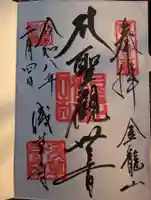 奉拝
金龍山
聖観世音
浅草寺
令和八年
二月四日